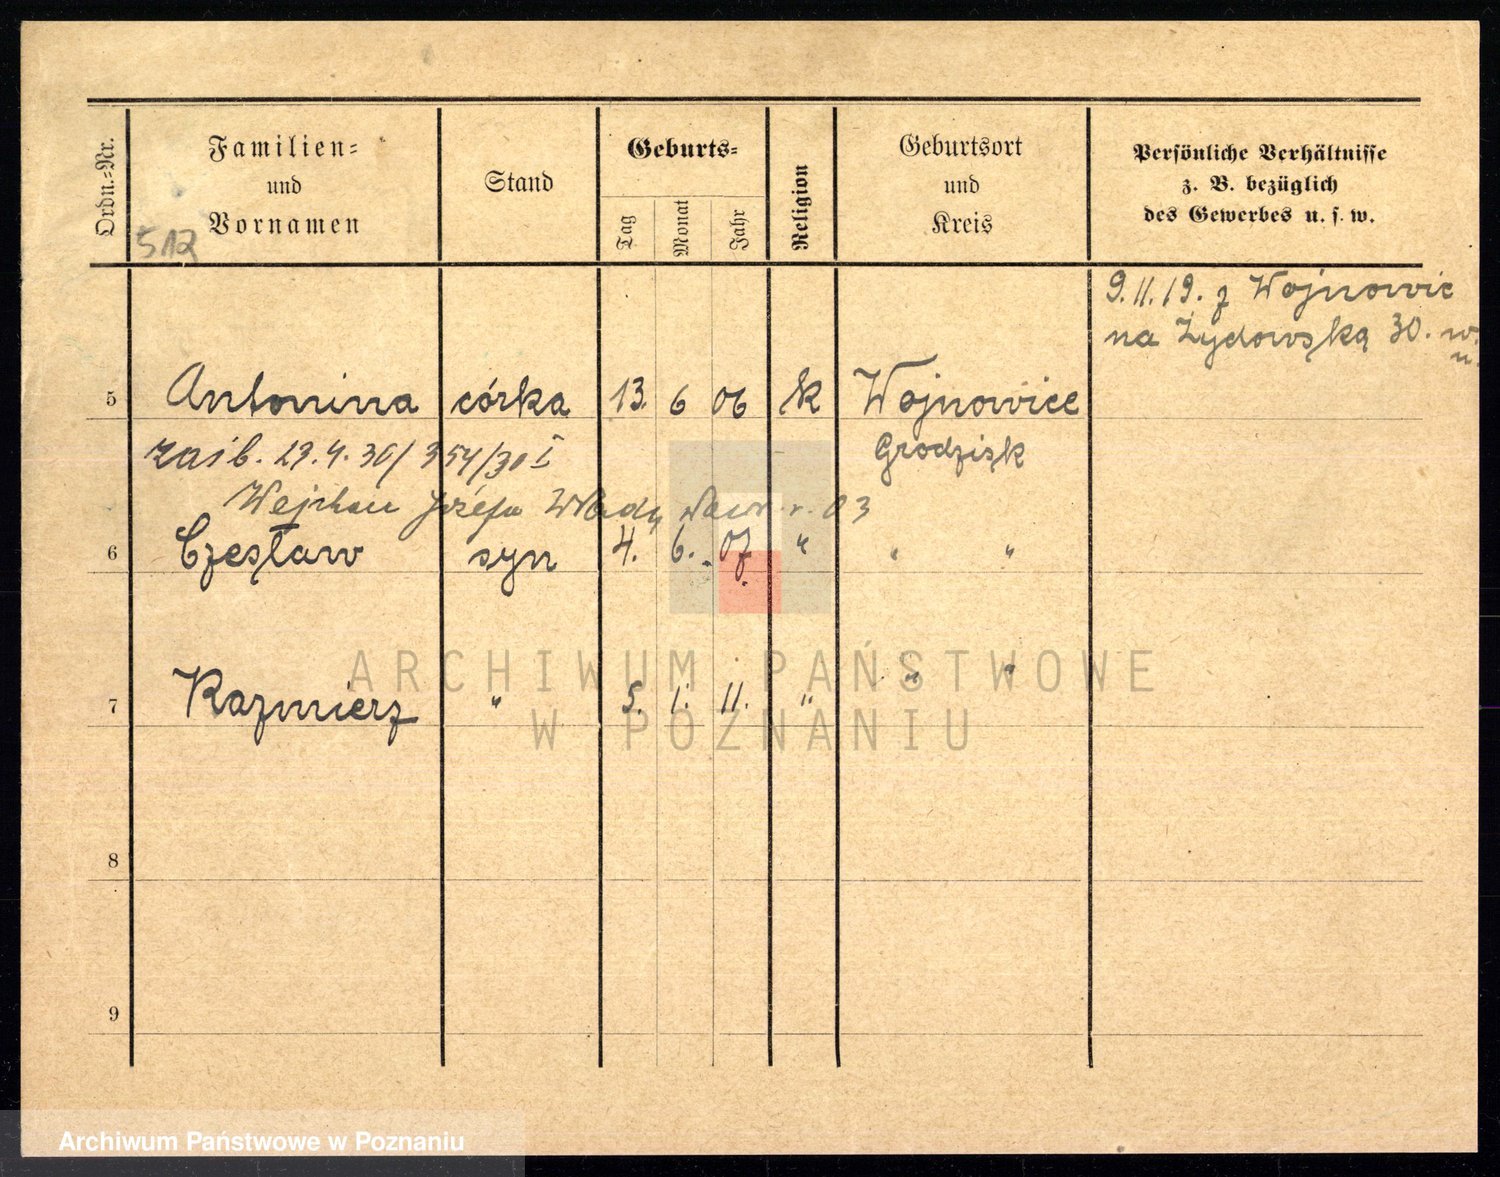 Ordn.-Nr.
Familien-
und
Vornamen
512
Stand
Geburts-
Tag
Monat
Jahr
Religion
Geburtsort
und
Kreis
Persönliche Verhältnisse
z. B. bezüglich
des Gewerbes u. s. w.
9. II. 19. z Wojnowic
na Żydowską 30. w.
5 Antonina córka 13. 6 06 k Wojnowice
Grodzisk
354/30 I
Józefa 03
6 Czesław syn 4. 6. 07. " " "
7 Kazmierz " 5. 1. 11. " " "
8
9
ARCHIWUM PAŃSTWOWE
W POZNANIU
Archiwum Państwowe w Poznaniu